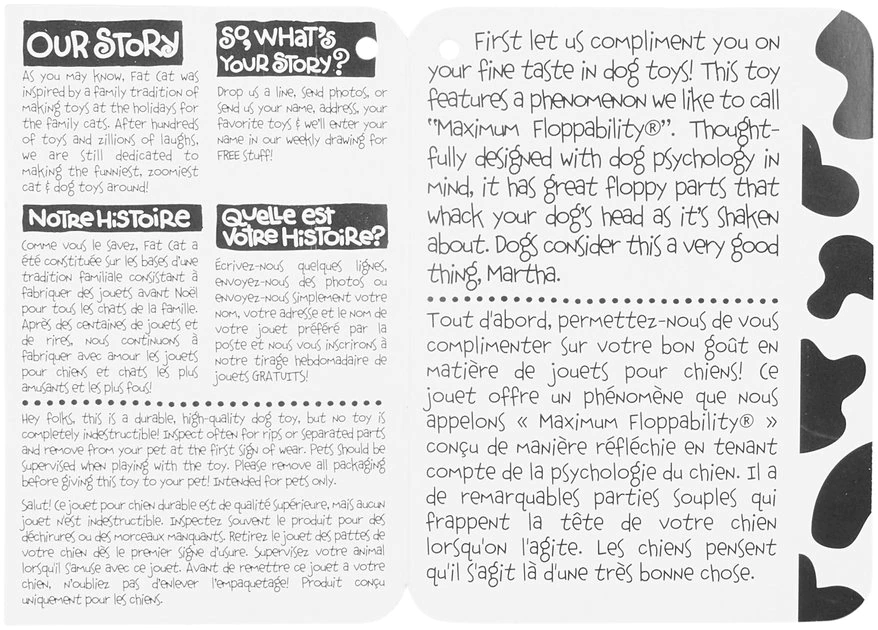 OUR STORY
As you may know, Fat Cat was
inspired by a family tradition of
making toys at the holidays for
the family cats. After hundreds
of toys and zillions of laughs,
we are still dedicated to
making the funniest, zoomiest
cat & dog toys around!
SO, WHAT'S
YOUR STORY?
Drop us a line, send photos, or
send us your name, address, your
favorite toys & we'll enter your
name in our weekly drawing for
FREE stuff!
NOTRE HISTOIRE
Comme vous le savez, Fat Cat a
été constituée sur les bases d'une
tradition familiale consistant à
fabriquer des jouets avant Noël
pour tous les chats de la famille.
Après des centaines de jouets et
de rires, nous continuons à
fabriquer avec amour les jouets
pour chiens et chats les plus
amusants et les plus fous!
Quelle est
vôtre HISTOIRE?
Écrivez-nous quelques lignes,
envoyez-nous des photos ou
envoyez-nous simplement votre
nom, votre adresse et le nom de
votre jouet préféré par la
poste et nous vous inscrirons à
notre tirage hebdomadaire de
jouets GRATUITS!
Hey folks, this is a durable, high-quality dog toy, but no toy is
completely indestructible! Inspect often for rips or separated parts
and remove from your pet at the first sign of wear. Pets should be
supervised when playing with the toy. Please remove all packaging
before giving this toy to your pet! Intended for pets only.
Salut! Ce jouet pour chien durable est de qualité supérieure, mais aucun
jouet n'est indestructible. Inspectez souvent le produit pour des
déchirures ou des morceaux manquants. Retirez le jouet des pattes de
votre chien dès le premier signe d'usure. Supervisez votre animal
lorsqu'il s'amuse avec ce jouet. Avant de remettre ce jouet a votre
chien, n'oubliez pas d'enlever l'empaquetage! Produit conçu
uniquement pour les chiens.
First let us compliment you on
your fine taste in dog toys! This toy
features a phenomenon we like to call
"Maximum Floppability®". Thought-
fully designed with dog psychology in
mind, it has great floppy parts that
whack your dog's head as it's shaken
about. Dogs consider this a very good
thing, Martha.
Tout d'abord, permettez-nous de vous
complimenter sur votre bon goût en
matière de jouets pour chiens! Ce
jouet offre un phénomène que nous
appelons « Maximum Floppability® »
conçu de manière réfléchie en tenant
compte de la psychologie du chien. Il a
de remarquables parties souples qui
frappent la tête de votre chien
lorsqu'on l'agite. Les chiens pensent
qu'il s'agit là d'une très bonne chose.